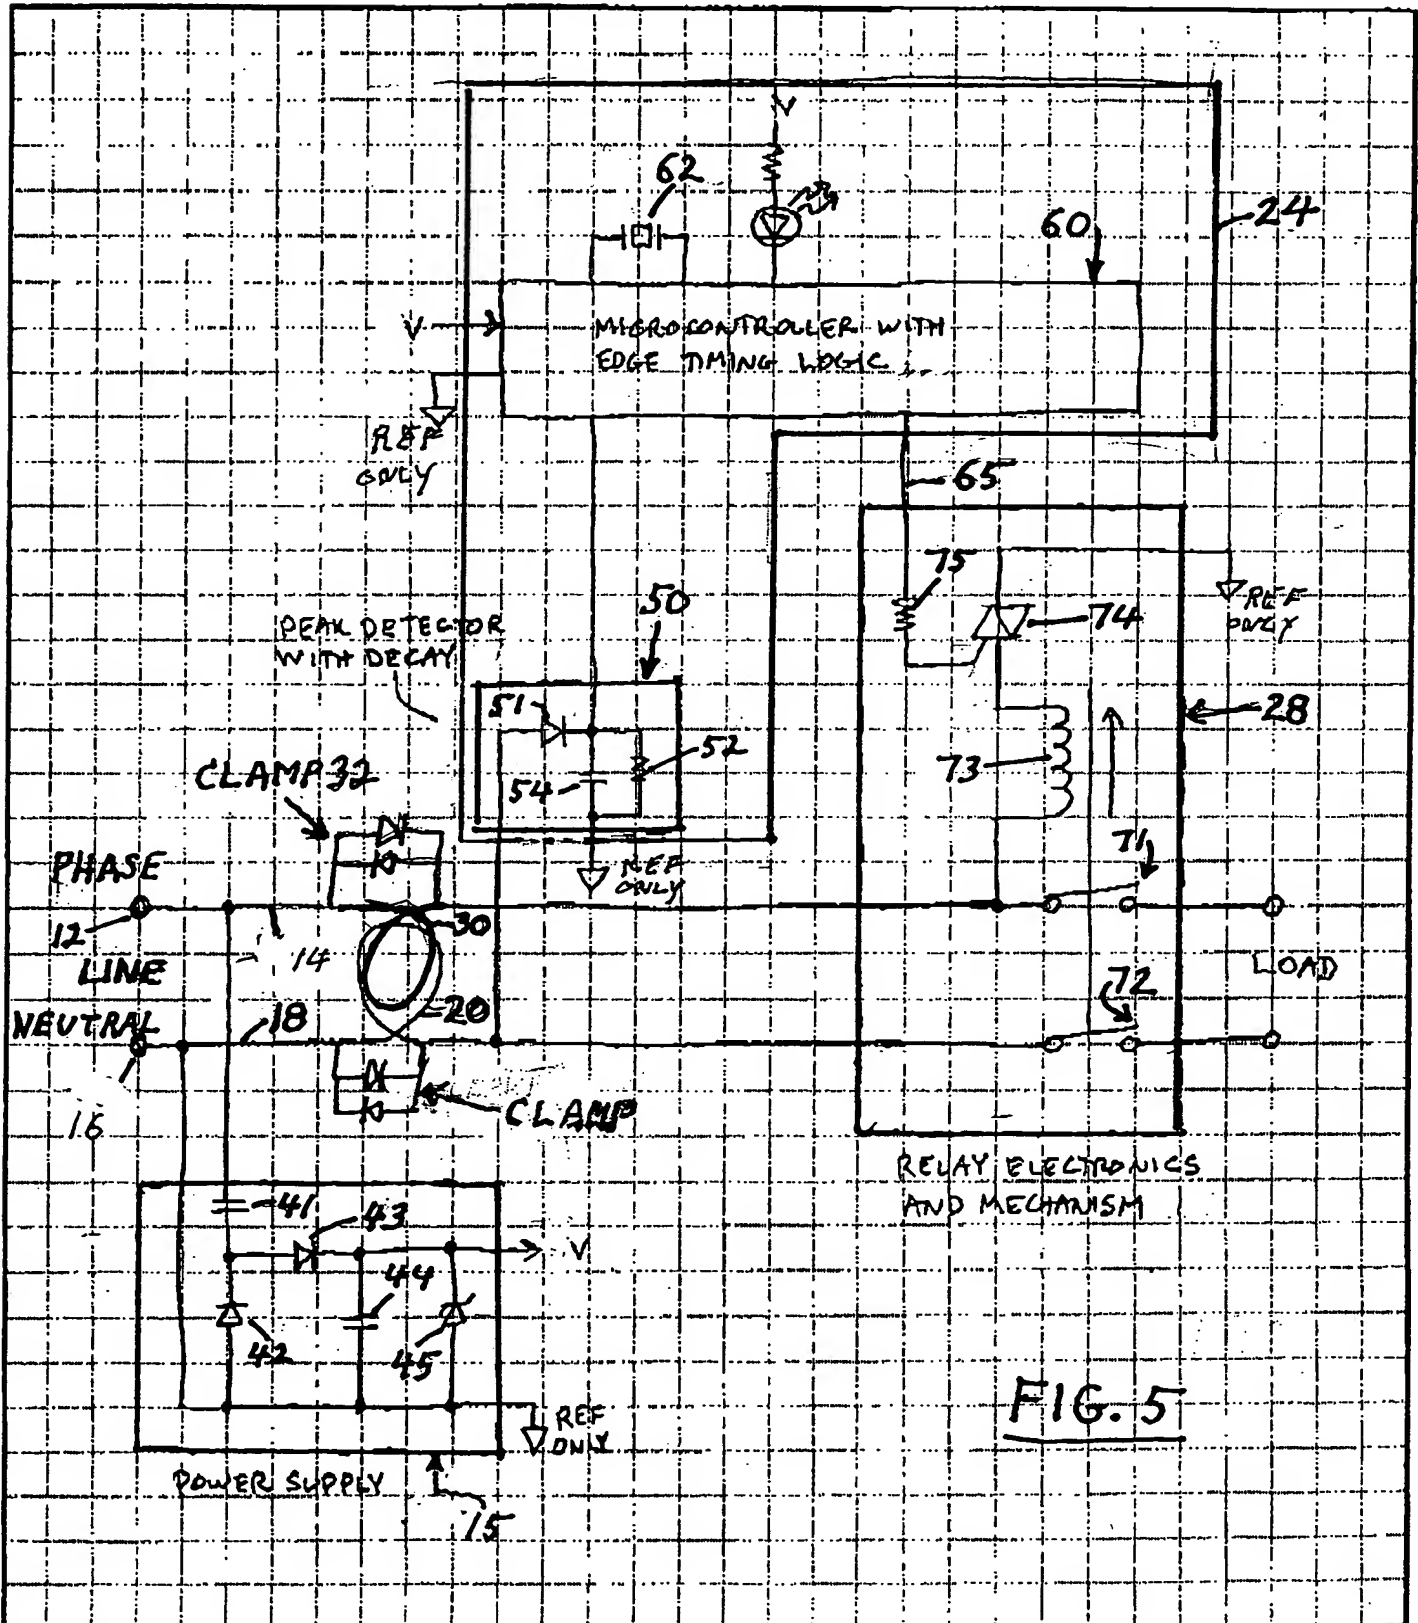 V
62
60
24
V
MICROCONTROLLER WITH
EDGE TIMING LOGIC
REF
ONLY
65
75
50
74
REF
ONLY
PEAK DETECTOR
WITH DECAY
51
52
54
28
73
CLAMP 32
71
PHASE
REF
ONLY
12
30
14
LINE
LOAD
72
NEUTRAL
18
20
CLAMP
16
RELAY ELECTRONICS
AND MECHANISM
41
43
V
44
42
45
REF
ONLY
FIG. 5
POWER SUPPLY
15